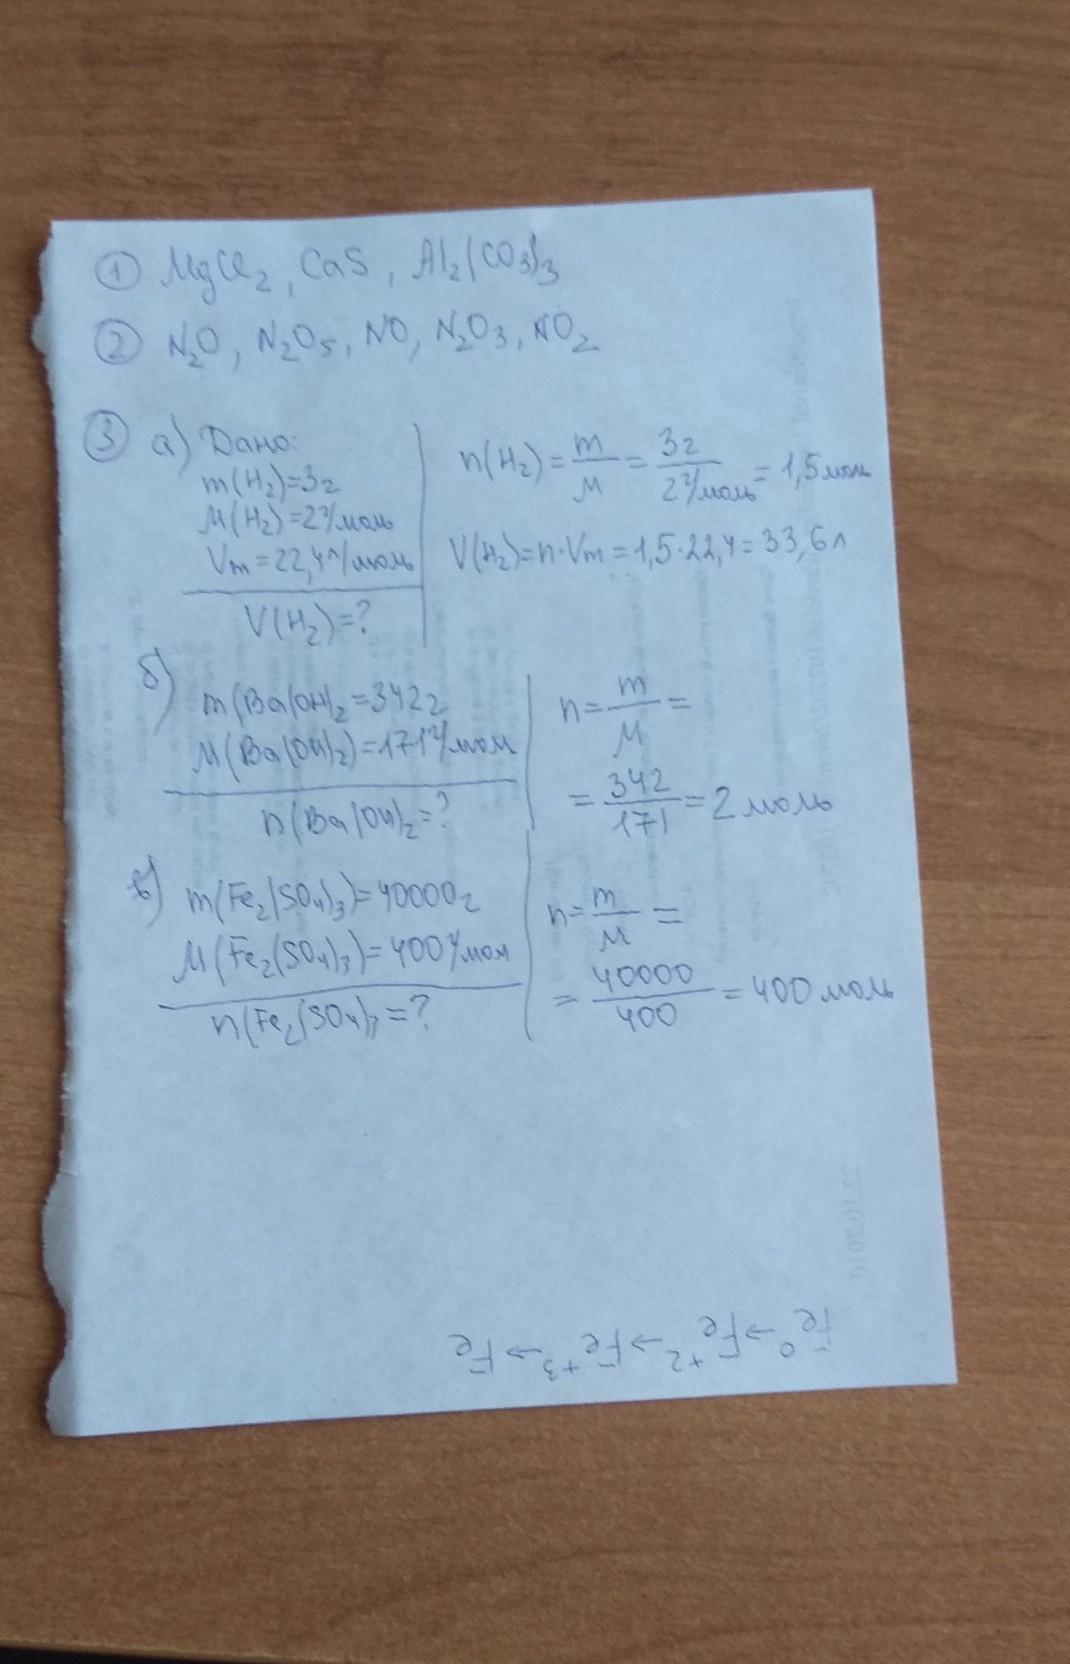 ① MgCl₂, CaS, Al₂(CO₃)₃
② N₂O, N₂O₅, NO, N₂O₃, NO₂
③ а) Дано:
m(H₂)=3г
M(H₂)=2г/моль
Vm=22,4л/моль
V(H₂)=?
n(H₂)=m/M=3г/2г/моль=1,5моль
V(H₂)=n·Vm=1,5·22,4=33,6л
б)
m(Ba(OH)₂=342г
M(Ba(OH)₂)=171г/мол
n(Ba(OH)₂=?
n=m/M=
=342/171=2моль
в)
m(Fe₂(SO₄)₃)=40000г
M(Fe₂(SO₄)₃)=400г/мол
n(Fe₂(SO₄)₃=?
n=m/M=
=40000/400=400моль
Fe⁰→Fe⁺²→Fe⁺³→Fe